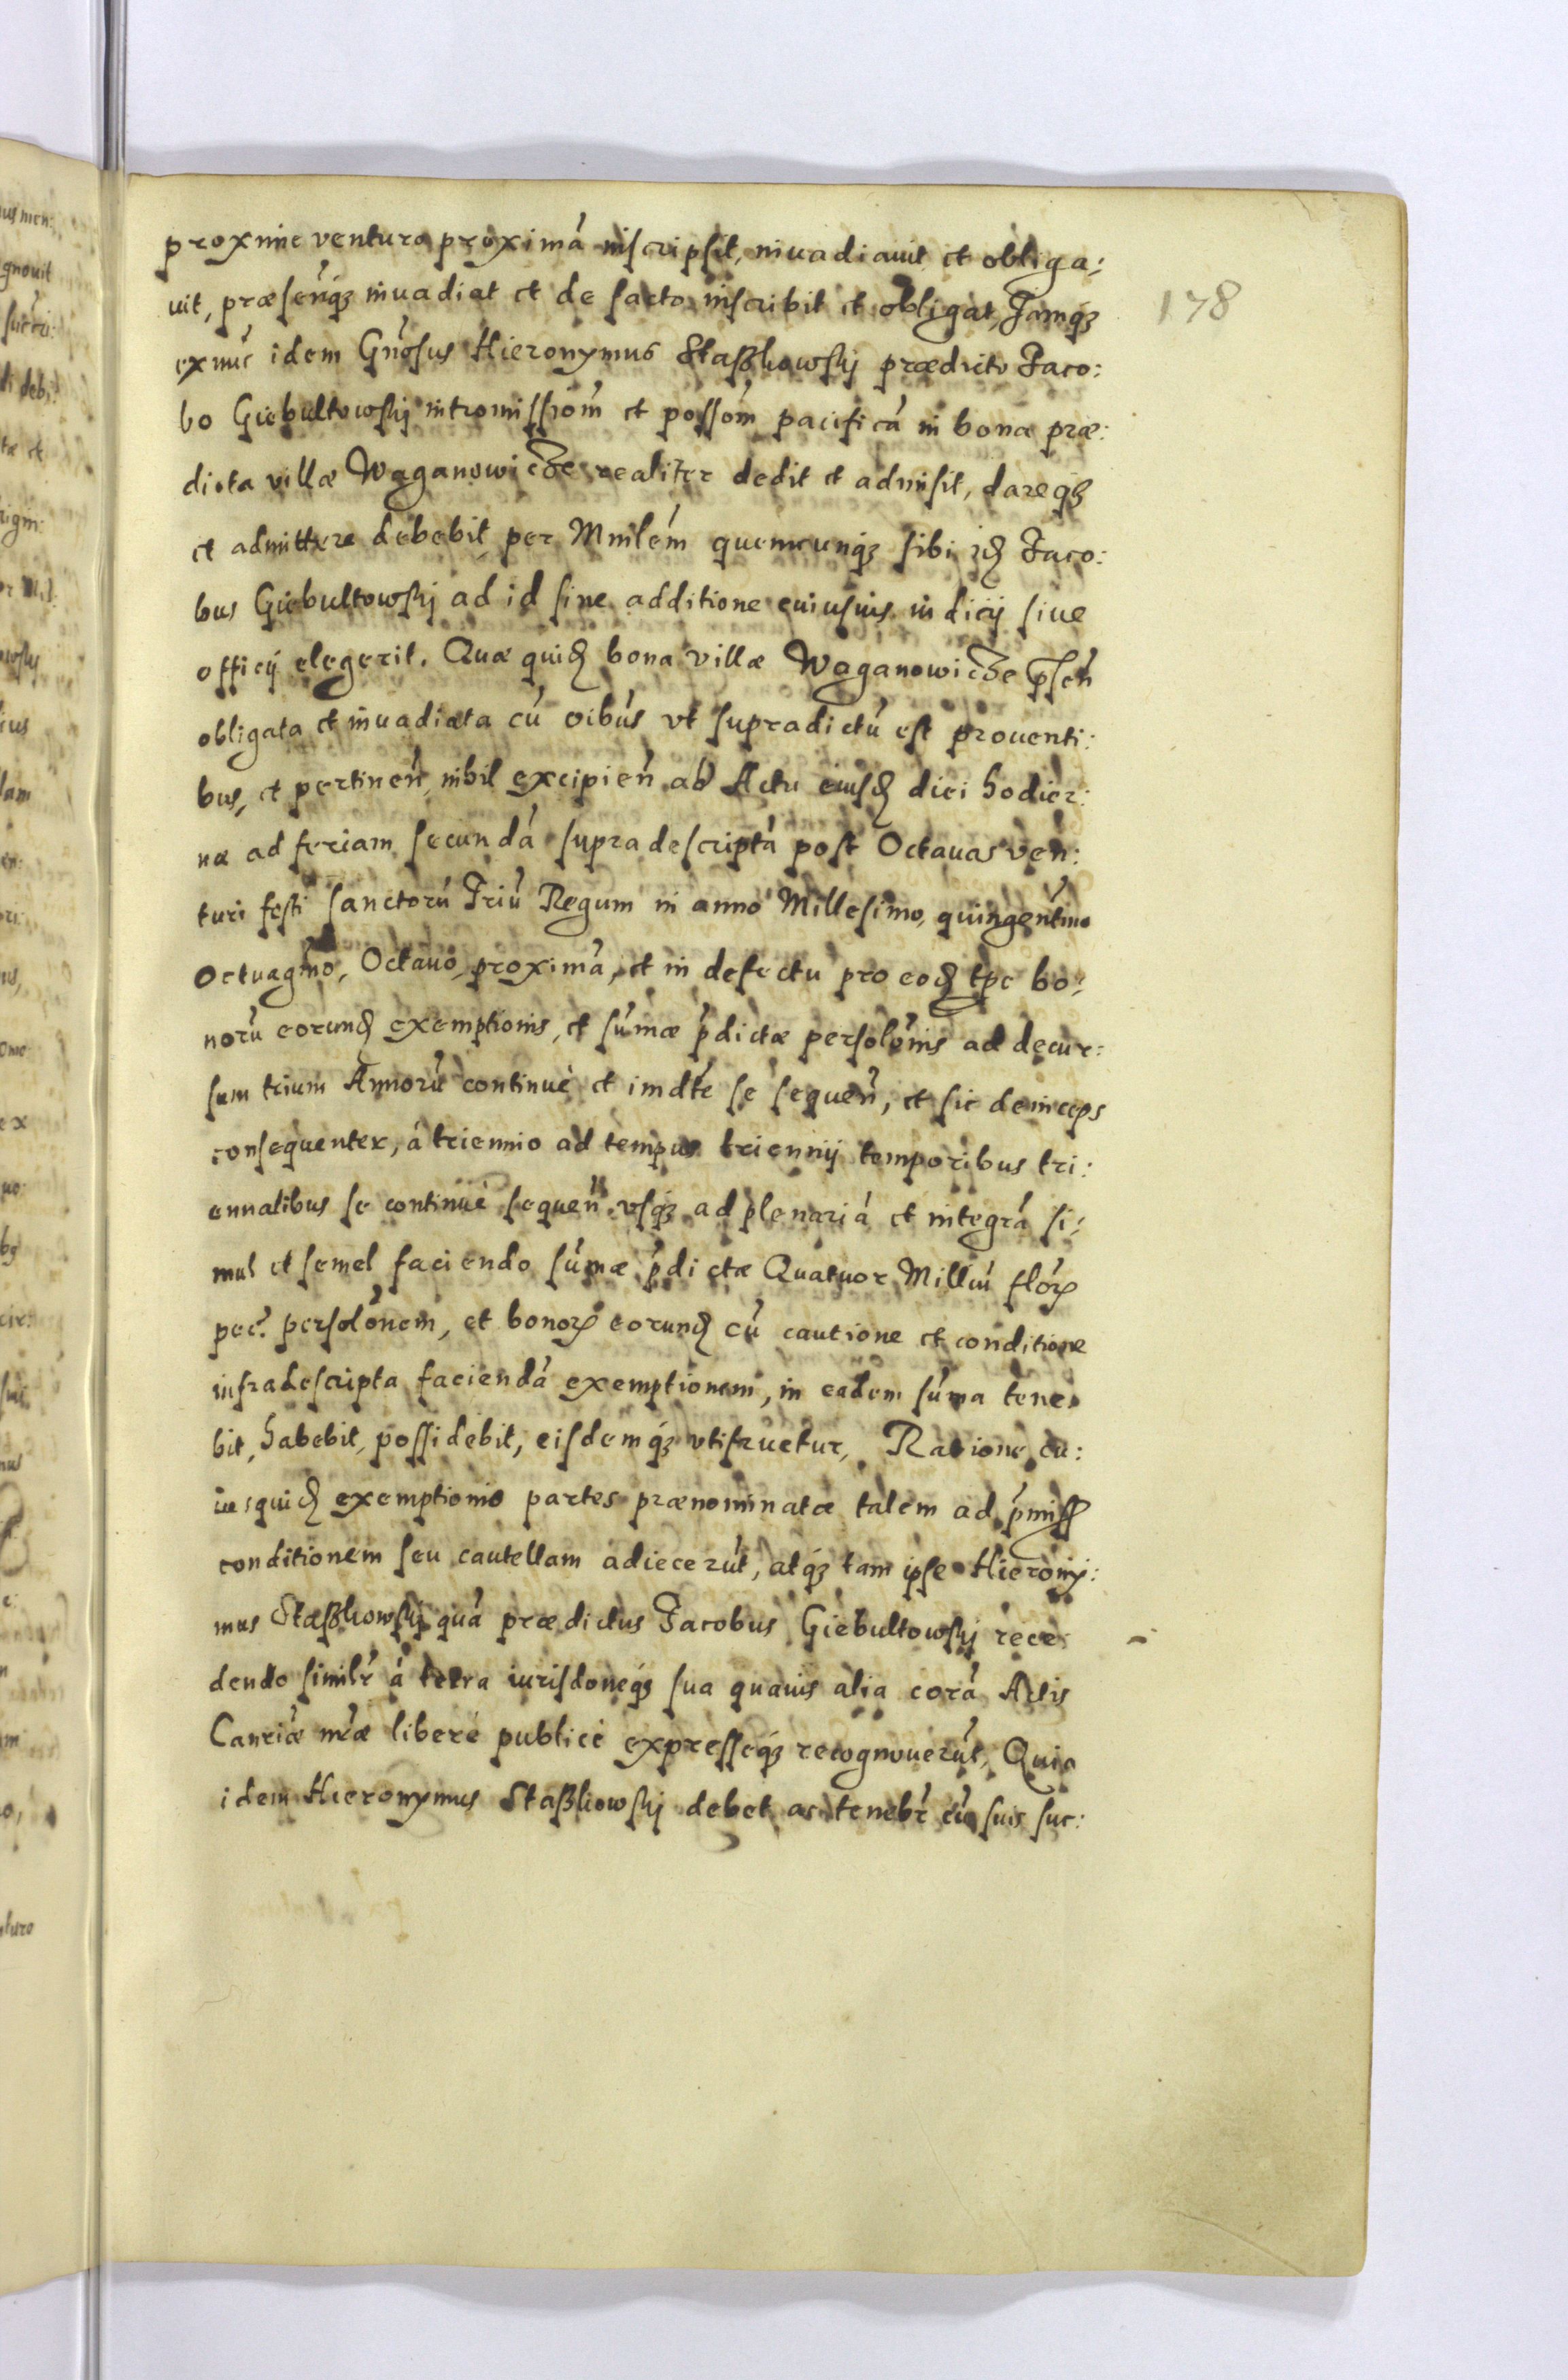 proxime ventura proximá inscripsit, inuadiauit et obliga:
uit, præsen̄q́ꝫ inuadiat et de facto inscribit et obligat, Jamq́ꝫ
ex nūc idem Gn̄osus Hieronymus Staßkowskj prædicto Jaco:
bo Giebultowskj intromissiōm et possōm pacificá in bona præ:
dicta villæ Waganowicze realiter dedit et admisit, dareq́ꝫ
et admittere debebit per Mnĺem quemcunq́ꝫ sibi idꝫ Jaco:
bus Giebultowskj ad id sine additione cuiusuis iudicij siue
officij elegerit. Quæ quidꝫ bona villæ Waganowicze p̄sen̄
obligata et inuadiata cū oībus vt supradictū est prouenti:
bus, et pertinen̄, nihil excipien̄ ab Actu eiusdꝫ diei hodier:
næ ad feriam secundá supradescriptá post Octauas ven:
turi festi sanctorū Triū Regum in anno Millesimo, quingentīmo
Octuagm̄o, Octauo, proximá, et in defectu pro eodꝫ tp̄e bo:
norū eorundꝫ exemptionis, et sum̄æ p̄dictæ persolōnis ad decur:
sum trium Annorū continuè et imdt̄e se sequen̄, et sic deinceps
consequenter, á triennio ad tempus triennij temporibus tri:
ennalibus se continuè sequen̄ vsq́ꝫ ad plenariá et integrá si:
mul et semel faciendo sum̄æ p̄dictæ Quatuor Milliū flor̄ꝝ
pec̄. persolōnem, et bonorꝝ eorundꝫ cū cautione et conditione
infradescripta faciendá exemptionem, in eadem sum̄a tene:
bit, habebit, possidebit, eisdemq́ꝫ vtifruetur, Ratione cu:
iusquidꝫ exemptionis partes prænominatæ talem ad p̄miss
conditionem seu cautellam adiecerūt, atq́ꝫ tam ipse Hierony:
mus Staßkowskj quá prædictus Jacobus Giebultowskj rece:
dendo simil̄r á terra iurisdoneq́ꝫ sua quauis alia corá Actis
Canriæ mēæ liberé publicè expresseq́ꝫ recognouerūt, Quia
idem Hieronymus Staßkowskj debet ac tenebr̄ cū suis suc:
178